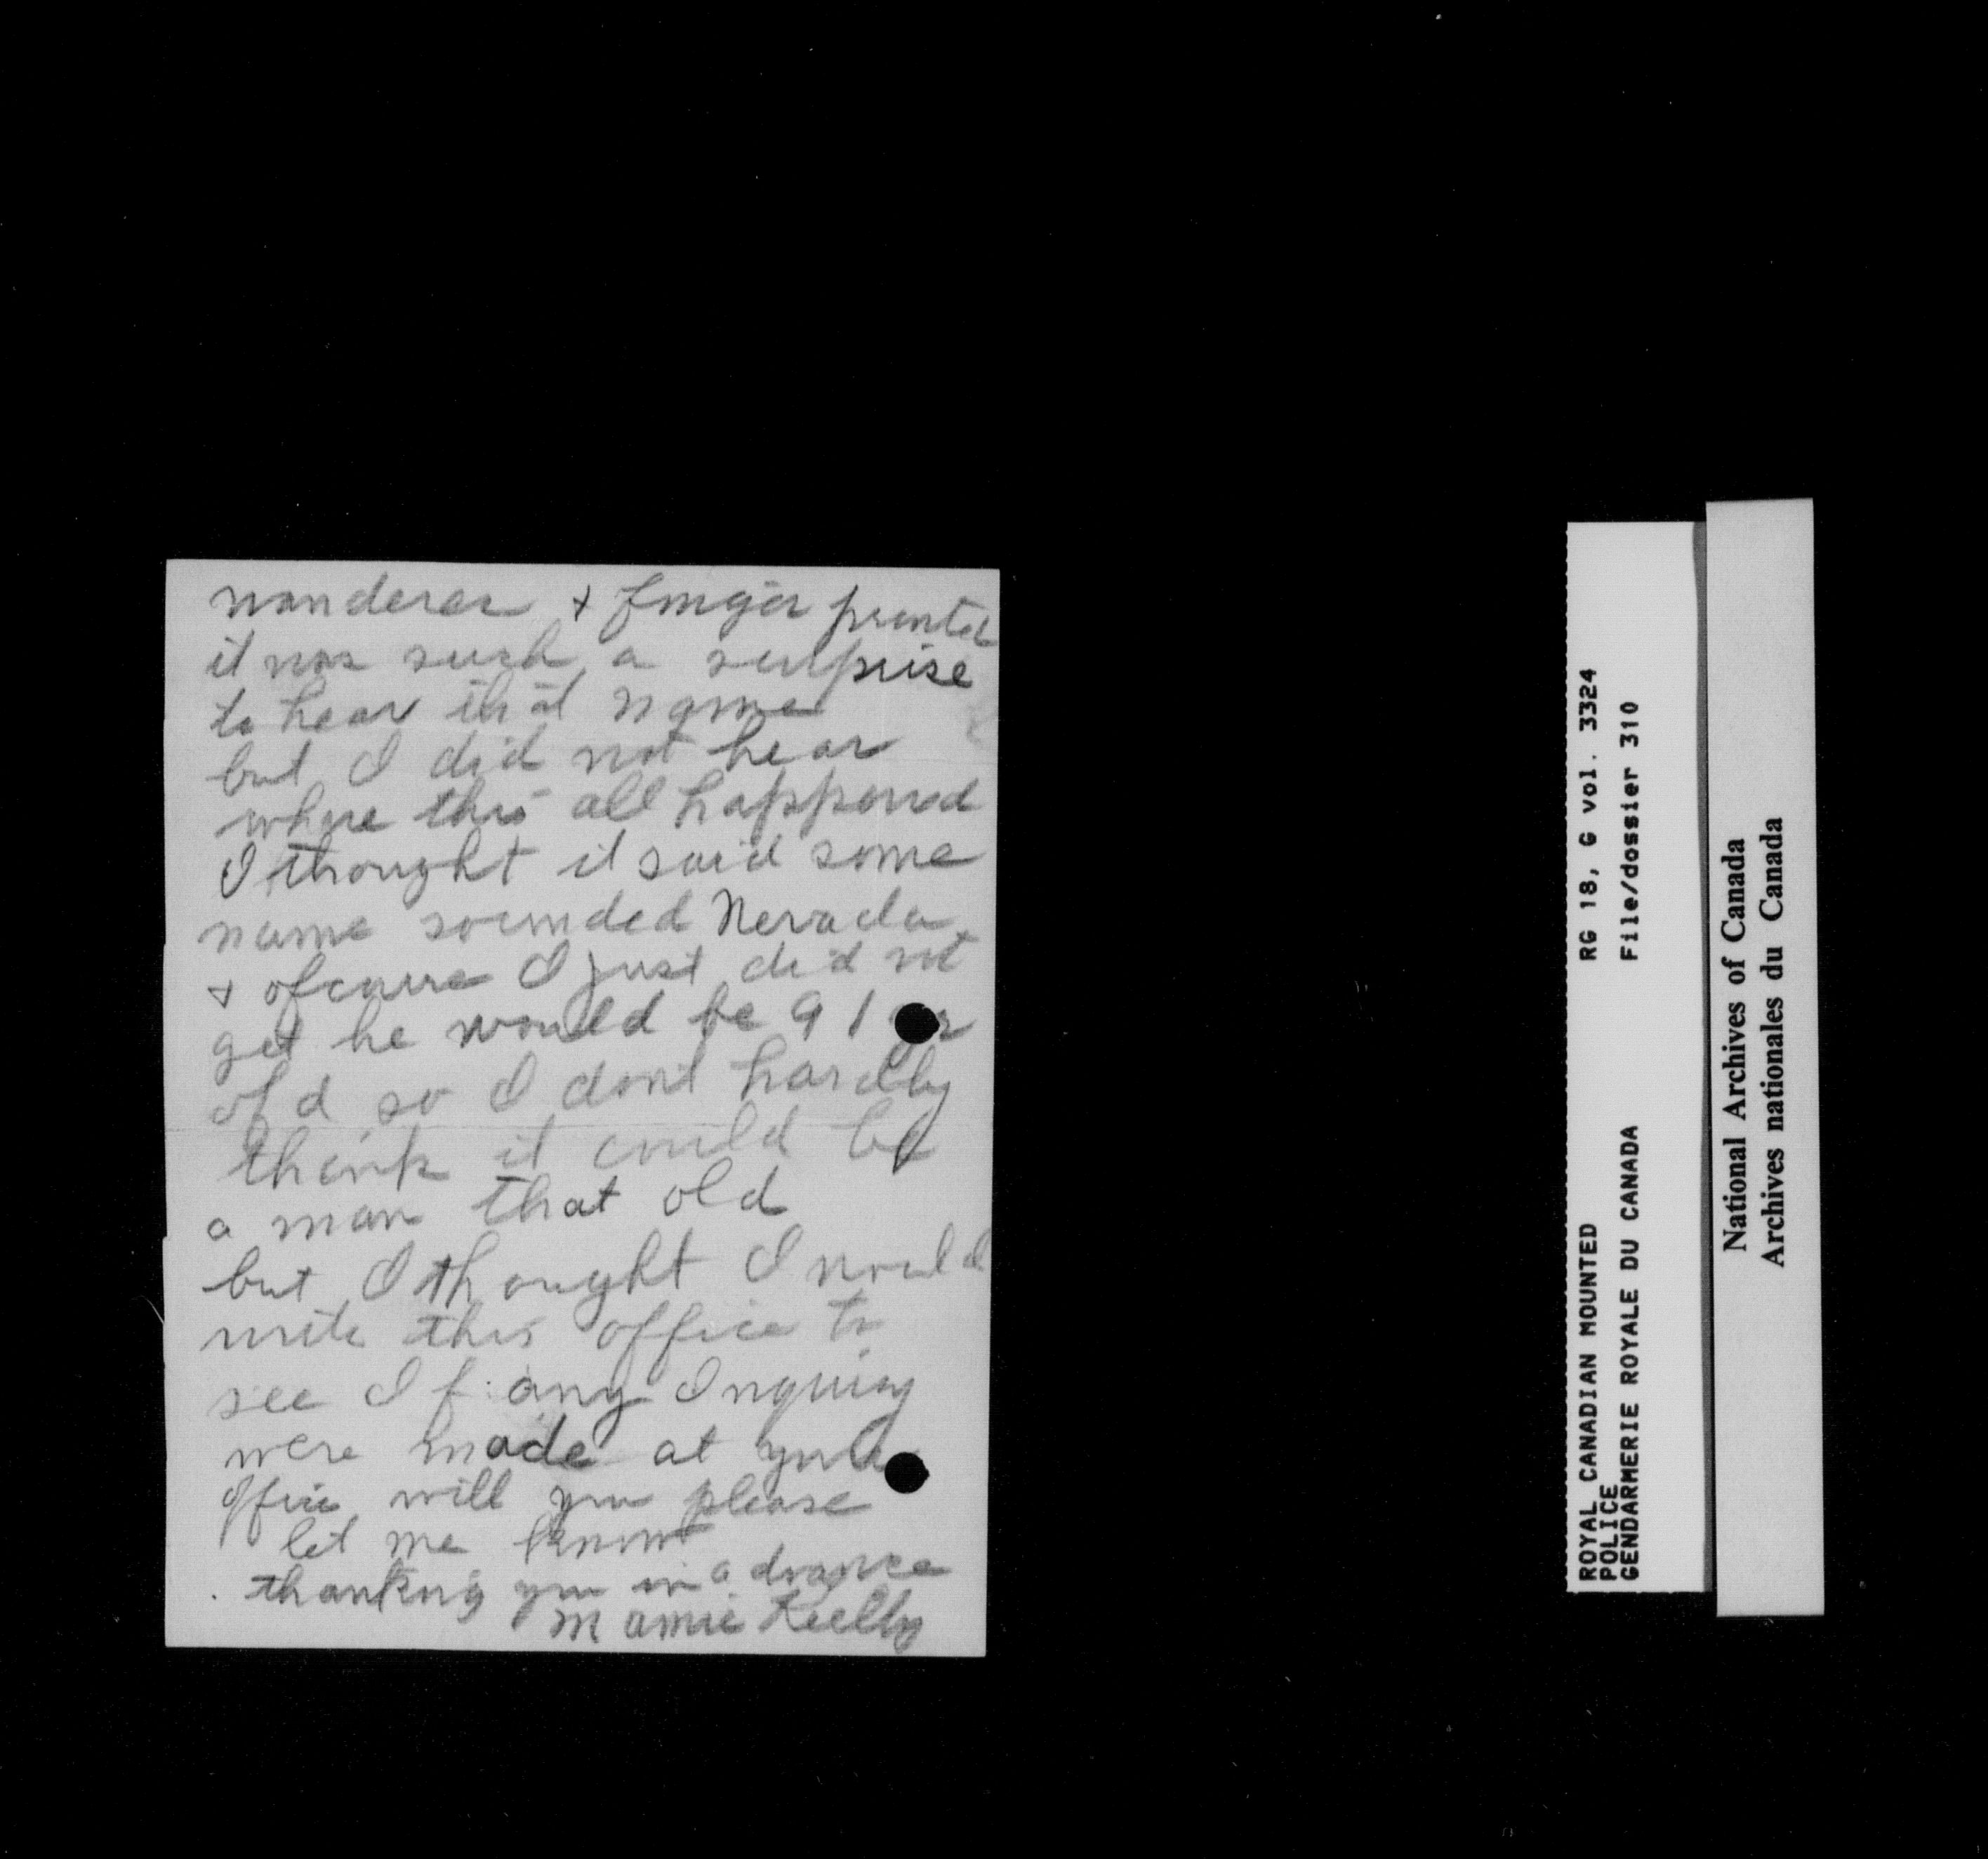 wanderer + finger printed
it was such a surprise
to hear that name
but I did not hear
where this all happened
I thought it said some
name sounded Nevada
+ ofcourse I just did not
get he would be 91 yr
old so I dont hardly
think it could be
a man that old
but I thought I would
write this office to
see If any Inquiry
were made at your
office will you please
let me know
thanking you in advance
Mamie Reilly
ROYAL CANADIAN MOUNTED RG 18, G vol. 3324
POLICE
GENDARMERIE ROYALE DU CANADA File/dossier 310
National Archives of Canada
Archives nationales du Canada